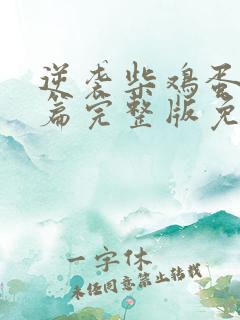 逆袭柴鸡蛋
篇完整版免
一字休
未经同意禁止转载